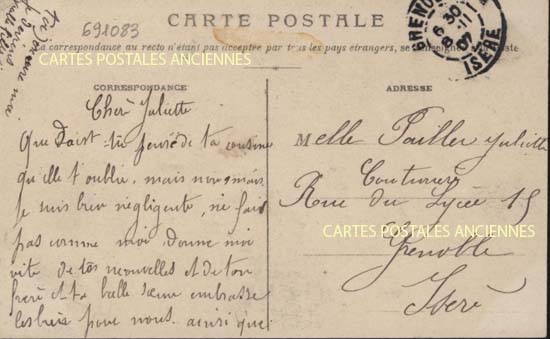 691083
CARTE POSTALE
La correspondance au recto n'étant pas acceptée par tous les pays étrangers, se renseigner à la poste
CARTES POSTALES ANCIENNES
CORRESPONDANCE
ADRESSE
GRENOBLE
6 30
8 11
07
ISÈRE
Cher Juliette
Que doist tu pensé de ta cousine
qu'elle t'oublie, mais non mais
je suis bien négligente, ne fait
pas comme moi donne moi
vite de tes nouvelles et de ton
frere et ta belle sœur embrasse
les bien pour nous. ainsi que
toi
Melle Pailler Juliette
Couturière
Rue du Lycée 15
Grenoble
Iserè
CARTES POSTALES ANCIENNES